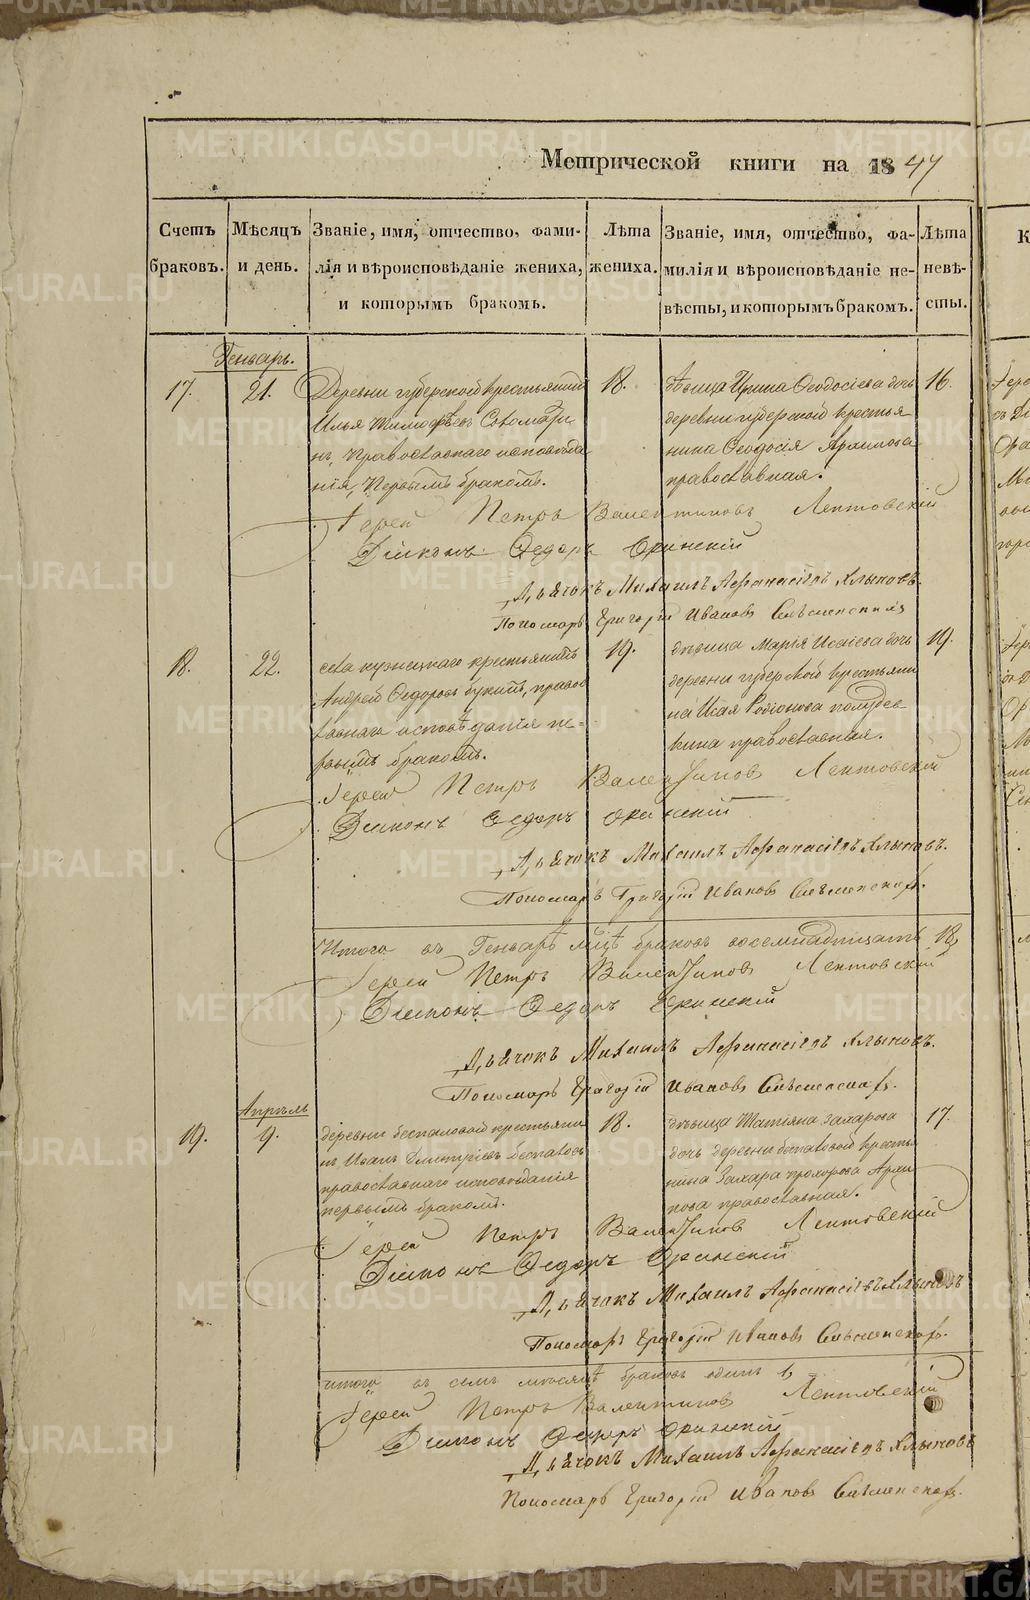 Метрической книги на 1847
Счетъ браковъ.
Мѣсяцъ и день.
Званіе, имя, отчество, фами-
лія и вѣроисповѣданіе жениха,
и которымъ бракомъ.
Лѣта
жениха.
Званіе, имя, отчество, фа-
милія и вѣроисповѣданіе не-
вѣсты, и которымъ бракомъ.
Лѣта
невѣ-
сты.
Генварь.
17.
21.
Деревни губерской крестьянинъ
Илья Тимофѣевъ
нъ, Православнаго исповѣда
нія, Первымъ бракомъ.
18.
дѣвица Ирина Ѳеодосіева дочь
деревни губерской крестья
нина Ѳеодосія Архипова
православная.
16.
Іерей Петръ Валентиновъ Лептовскій
Діаконъ Ѳедоръ
Дьячокъ Михаилъ Афанасіевъ Хлыновъ.
Пономарь Григорій Ивановъ
18.
22.
села кузнецкаго крестьянинъ
Андрей Ѳедоровъ букинъ, правос
лавнаго исповѣданія пе-
рвымъ бракомъ.
19.
дѣвица Марія Исаіева дочь
деревни губерской крестьяни
на Исая Родіонова полуде
кина православная.
19.
Іерей Петръ Валентиновъ Лептовскій
Діаконъ Ѳедоръ
Дьячокъ Михаилъ Афанасіевъ Хлыновъ.
Пономарь Григорій Ивановъ
Итого въ Генварѣ мцѣ браковъ восемнадцать 18,
Іерей Петръ Валентиновъ Лептовскій
Діаконъ Ѳедоръ
Дьячокъ Михаилъ Афанасіевъ Хлыновъ.
Пономарь Григорій Ивановъ
Апрѣль
19.
9.
деревни беспаловой крестьяни
нъ Иванъ Димитріевъ беспаловъ
православнаго исповѣданія
первымъ бракомъ.
18.
дѣвица Татіяна Захарова
дочь деревни беспаловой крестья
нина Захара прохорова Архи
пова православная.
17.
Іерей Петръ Валентиновъ Лептовскій
Діаконъ Ѳедоръ
Дьячокъ Михаилъ Афанасіевъ Хлыновъ
Пономарь Григорій Ивановъ
итого въ семъ мѣсяцѣ браковъ одинъ 1,
Іерей Петръ Валентиновъ Лептовскій
Діаконъ Ѳедоръ
Дьячокъ Михаилъ Афанасіевъ Хлыновъ
Пономарь Григорій Ивановъ
METRIKI.GASO-URAL.RU